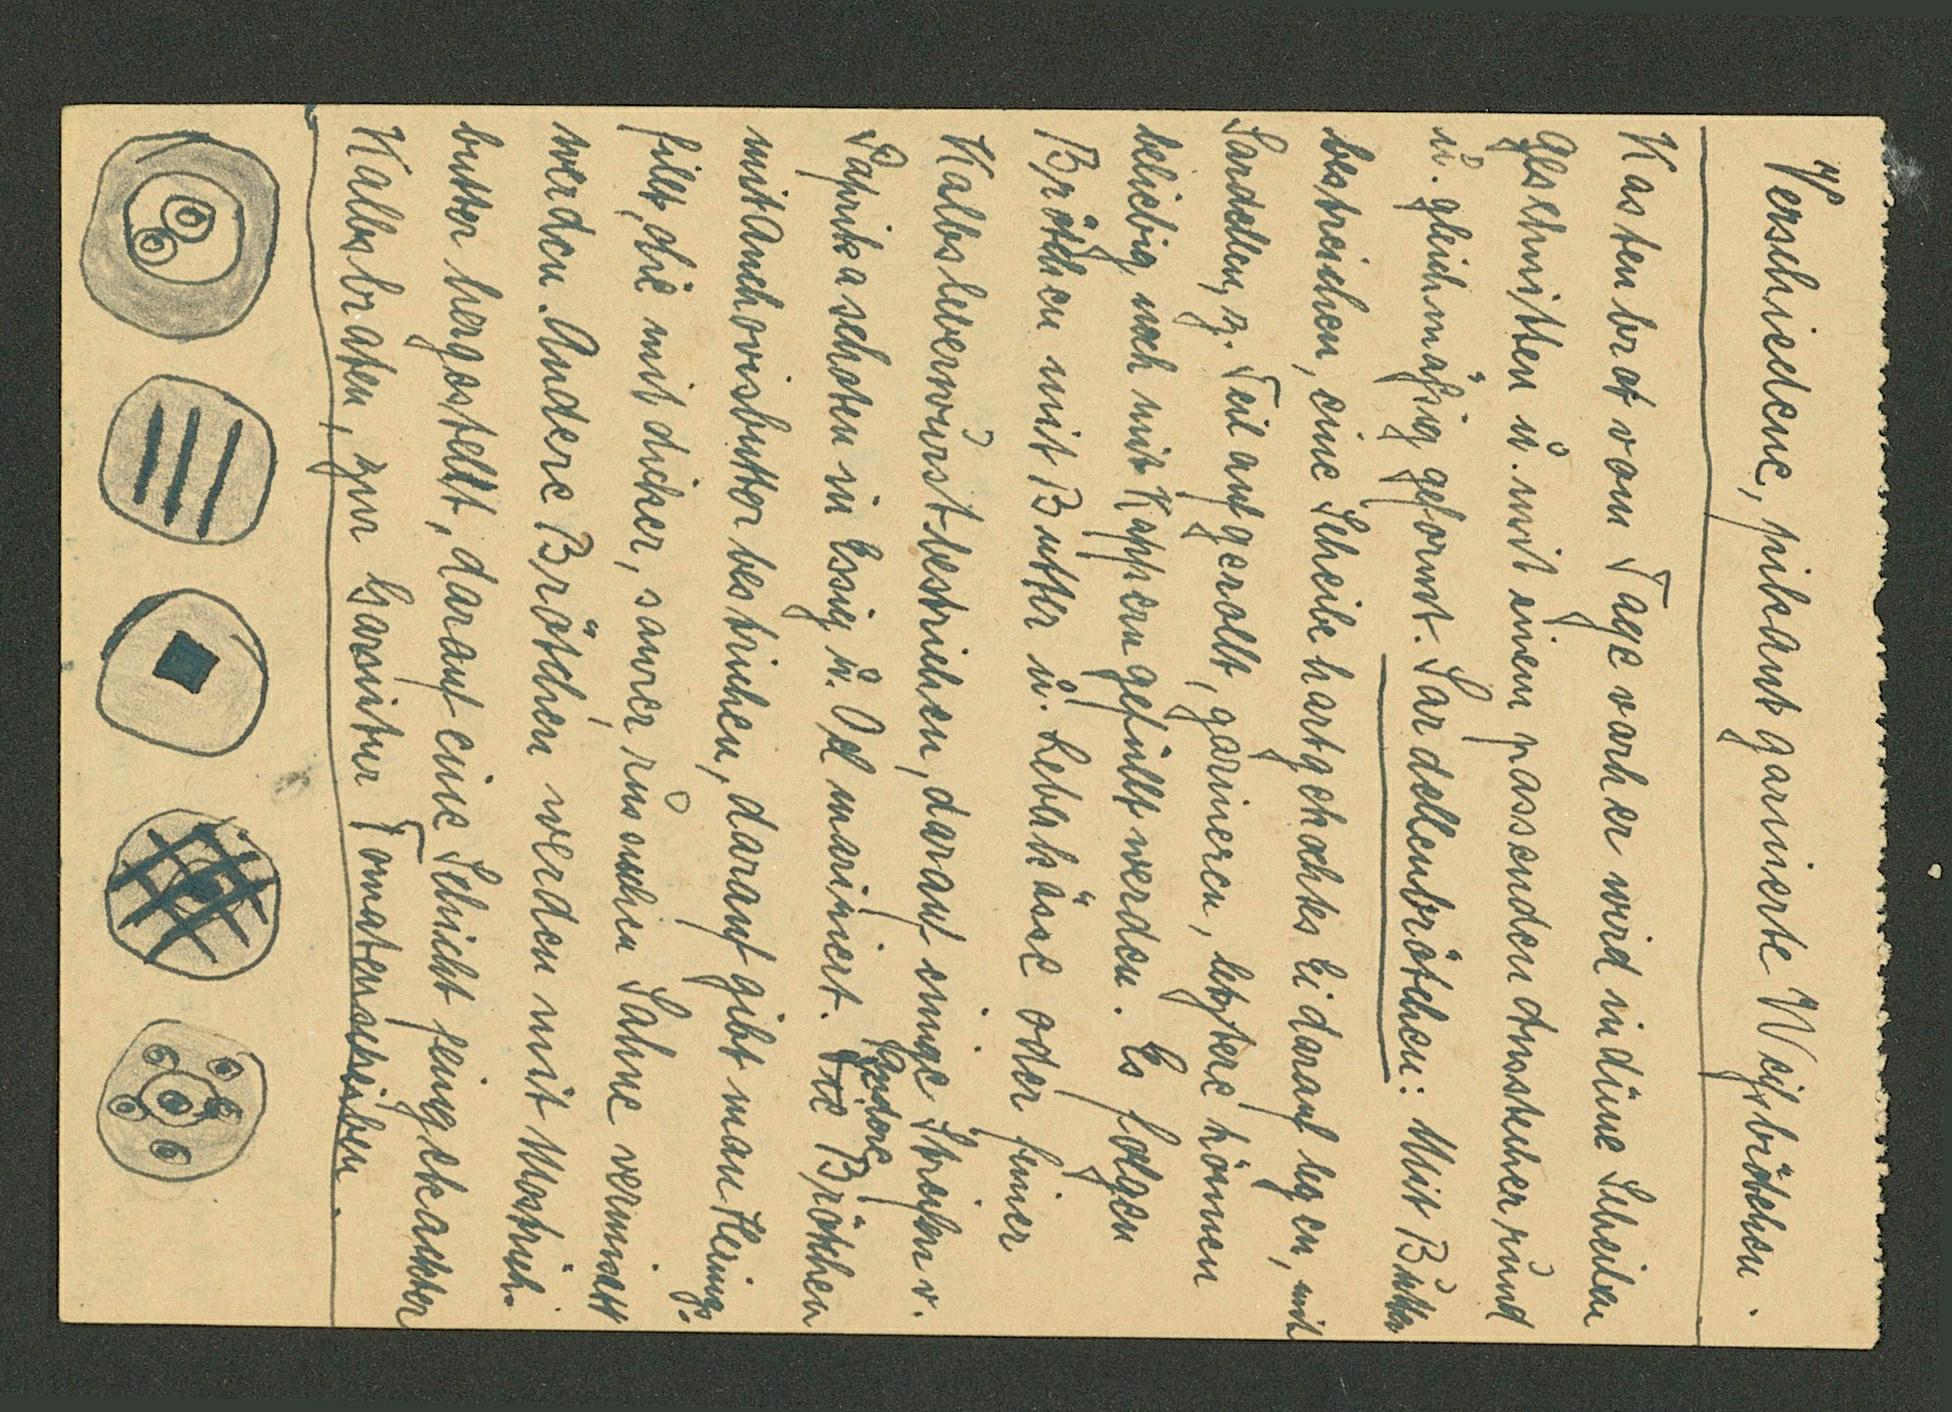 Verschiedene, pikant garnierte Weißbrötchen.
Kastenbrot vom Tage vorher wird in düne Scheiben
geschnitten u. mit einem passenden Ausstecher rund
u. gleichmäßig geformt. Sardellenbrötchen: Mit Butter
bestreichen, eine Scheibe hartgekochtes Ei darauf legen, mit
Sardellen, z. Teil aufgerollt, garnieren, letztere können
beliebig noch mit Kappern gefüllt werden. Es folgen
Brötchen mit Butter u. Leberkäse oder feiner
Kalbsleberwurst bestrichen, darauf einige Streifen v.
Paprikaschoten in Essig u. Öl mariniert. Andere Brötchen
mit Anchovisbutter bestrichen, darauf gibt man Herings-
filet, die mit dicker, saurer, süssen Sahne vermischt
werden. Andere Brötchen werden mit Mostrich-
butter hergestellt, darauf eine Schicht feingehackter
Kalbsbraten, zur Garnitur Tomatenscheiben.